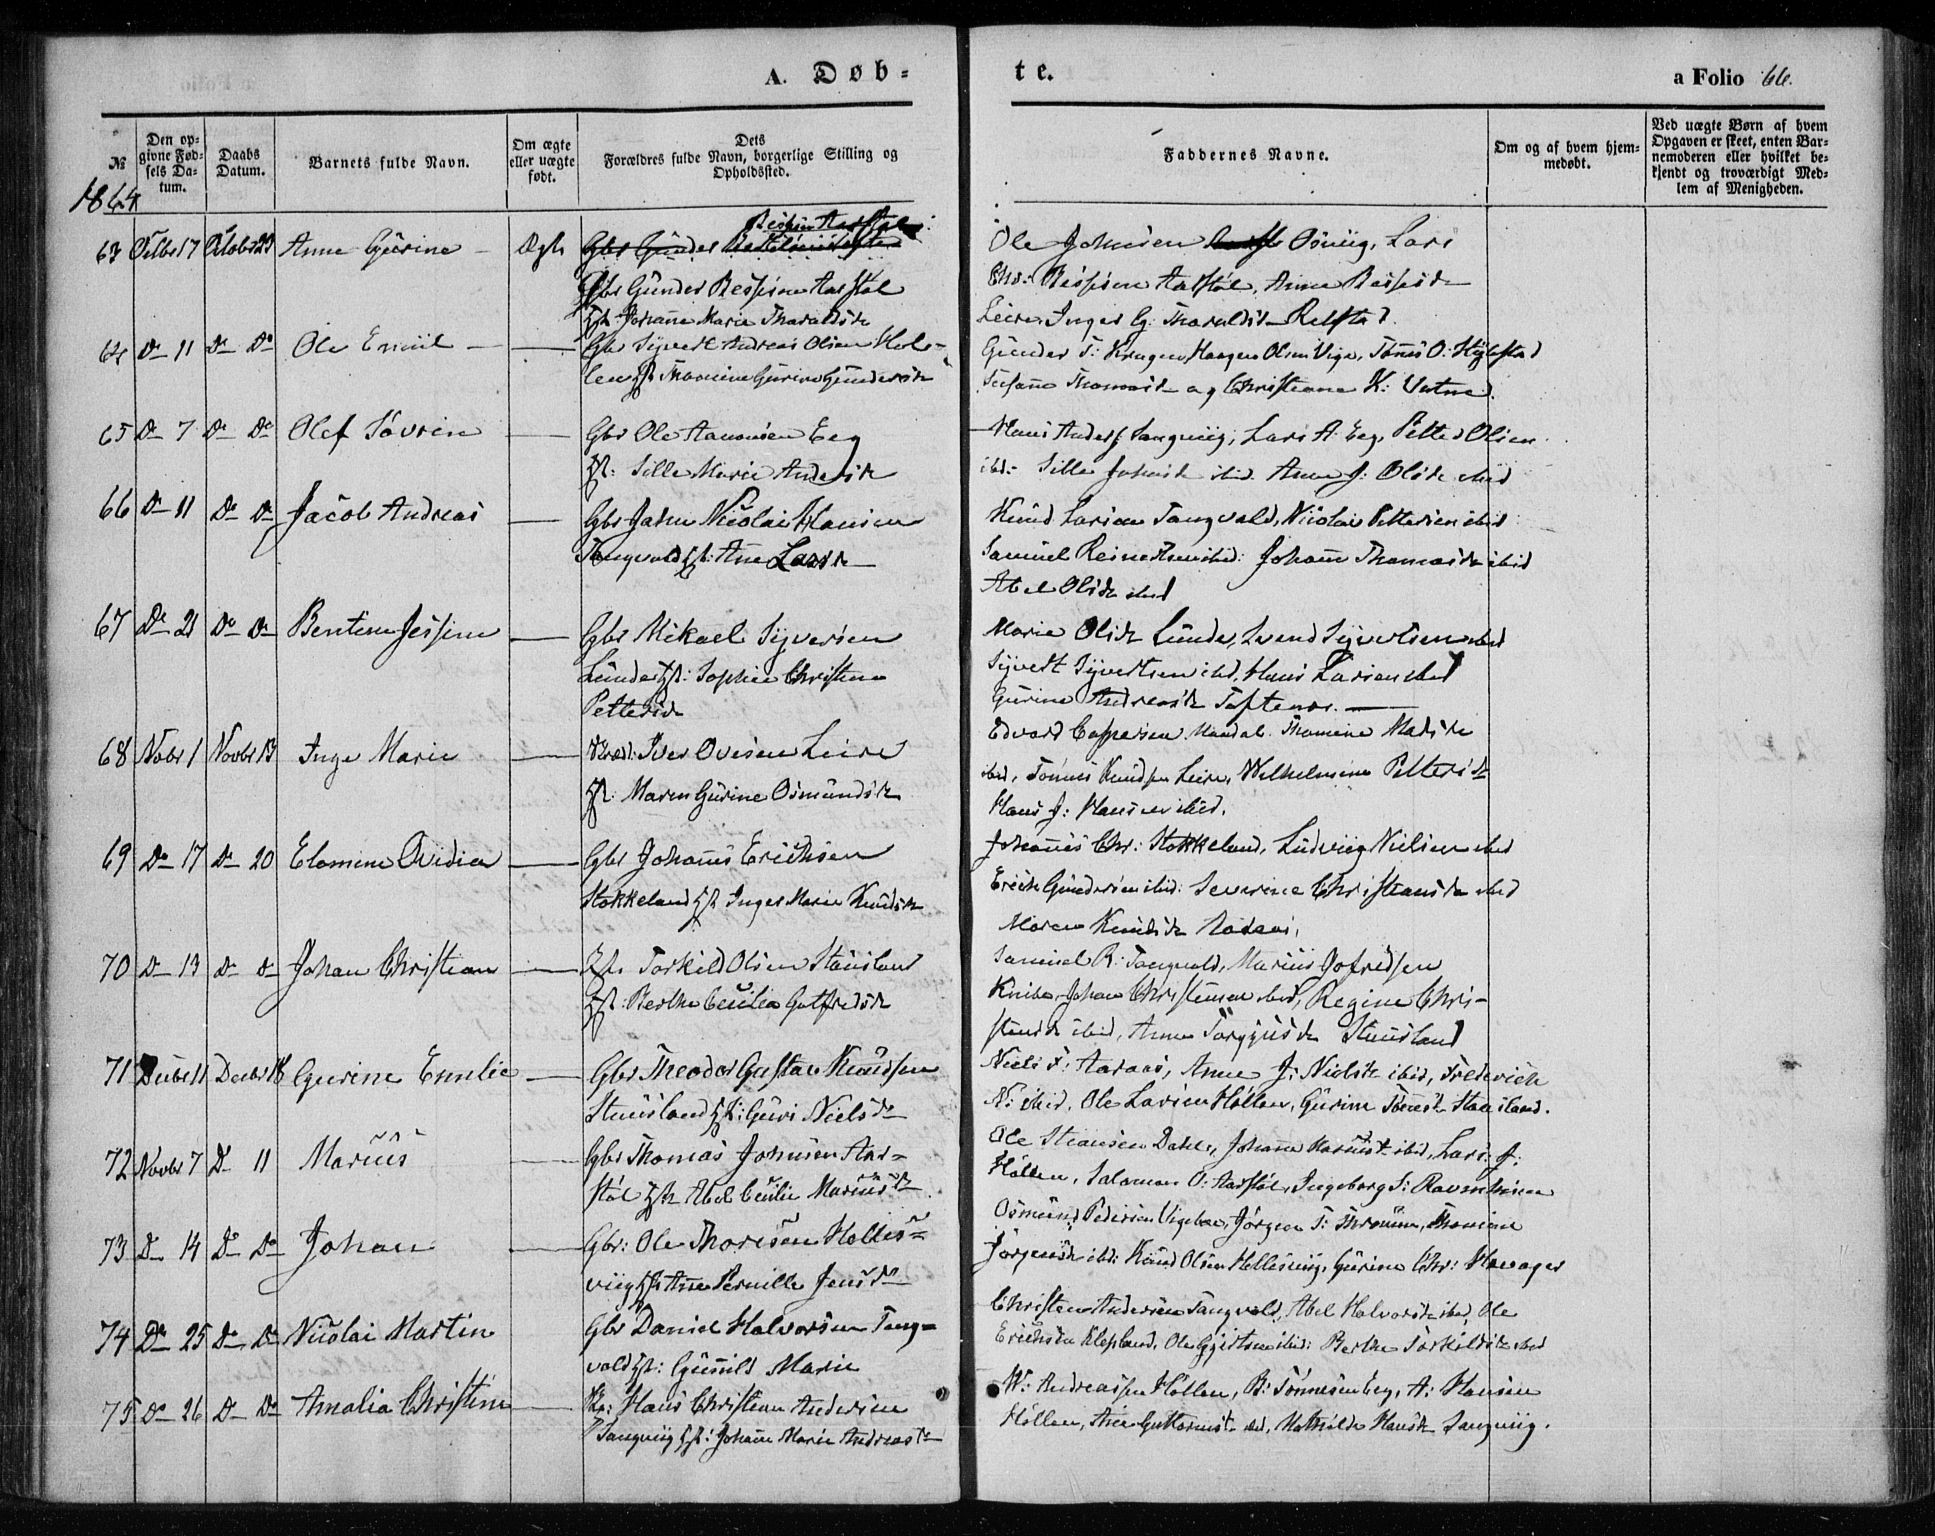 A. Døb-
te.
a Folio 66.
№
Den op-
givne Fød-
sels Da-
tum.
Daabs
Datum.
Barnets fulde Navn.
Om ægte
eller uægte
født.
Dets
Forældres fulde Navn, borgerlige Stilling og
Opholdssted.
Faddernes Navne.
Om og af hvem hjem-
medøbt.
Ved uægte Børn af hvem
Opgaven er skeet, enten Bar-
nemoderen eller hvilket be-
kjendt og troværdigt Med-
lem af Menigheden.
1864
63 17 23 Anne Gurine Ægte
Gbr Gunder Aarstøl
Johanne Marie Tharaldsdtr
Ole Johnsen Lars
Aarstøl, Anne
Leire, Inger G: Tharaldsd
64 Do 11 Do Do Ole Emil
Gbr Syvert Andreas Olsen Høl-
len Thomine Gurine Gundersdtr
Gunder T: Haagen Olsen Vige, Tønes O:
Thomasdtr og Christiane K: Vatne
65 Do 7 Do Do Olef Søvrin
Gbr Ole Aanonsen Eeg
Sille Marie Andersdtr
Hans Anders Langviig, Lars A. Eeg, Petter Olsen
ibd: Sille ibid Anne J: Olsdtr ibid
66 Do 11 Do Do Jacob Andreas
Gbr John Nicolai Hansen
Tangvald Ane Larsdtr
Knud Larsen Tangvald, Nicolai Pettersen ibid
Samuel Reinertsen ibid: Johanne Thomasdtr ibid
Abel Olsdtr ibid
67 Do 21 Do Do Bentine Jessine
Gbr Mikael Syversen
Lunde Sophie Christine
Pettersdtr
Marie Olsdtr Lunde, Svend Syvertsen ibid
Syvert Syvertsen ibid, Hans Larsen ibid
Gurine Andreasdtr Toftenes.
68 Novbr 1 Novbr 13 Inge Marie
Iver Ovesen Leire
Maren Gurine Osmundsdtr
Edvard Caspersen Mandal Thomine Madsdtr
ibid, Tønnes Knudsen Leire, Wilhelmine Pettersdtr
Hans J: Hansen ibid.
69 Do 17 Do 20 Elomine Ovidia
Gbr Johannes Erichsen
Stokkeland Inger Marie Knudsdtr
Johannes Chr: Stokkeland, Ludvig Nielsen ibid
Erich Gundersen ibid: Severine Christiansdtr ibid
Maren Knudsdtr
70 Do 13 Do Do Johan Christian
Torkild Olsen Stausland
Berthe Cecilia Gotfredsdtr
Samuel R: Tangvald, Marius Gofredsen
Knibe, Johan Christensen ibid, Regine Chri-
stensdtr ibid, Anne Stausland
71 Decbr 11 Decbr 18 Gurine Emilie
Gbr Theodor Gustav Knudsen
Stausland Guri Nielsdtr
Niels T: Aaraas, Anne J: Nielsdtr ibid, Frederich
N: ibid, Ole Larsen Høllen, Gurine Tønnesdtr Stausland.
72 Novbr 7 Do 11 Marius
Gbr Thomas Johnsen Aar-
støl Abel Cecilie Mariusdtr
Ole Dahle, Johanne ibid, Lars J:
Høllen, Salomon O: Aarstøl, Ingeborg S: Ravnheien
73 Do 14 Do Do Johan
Gbr: Ole Thorsen Helles-
viig Ane Pernille Jensdtr
Osmund Pedersen Vigebo, Jørgen T: Thomine
Jørgensdtr ibid: Knud Olsen Hellesviig, Gurine Chr: Havager
74 Do 25 Do Do Nicolai Martin
Gbr Daniel Halvorsen Tang-
vald Gunild Marie
Christen Andersen Tangvald, Abel Halvorsdtr ibid, Ole
Erichsen Klepland, Ole ibid: Berthe Torkildsdtr ibid
75 Do 26 Do Do Amalia Christine
Hans Christian Andersen
Langviig Johanne Marie Andreasdtr
N: Andreassen Høllen, B: Tønnesen Eeg, A: Hansen
Høllen, Ane Guttormsdtr ibid, Mathilde Hansdtr Langviig.